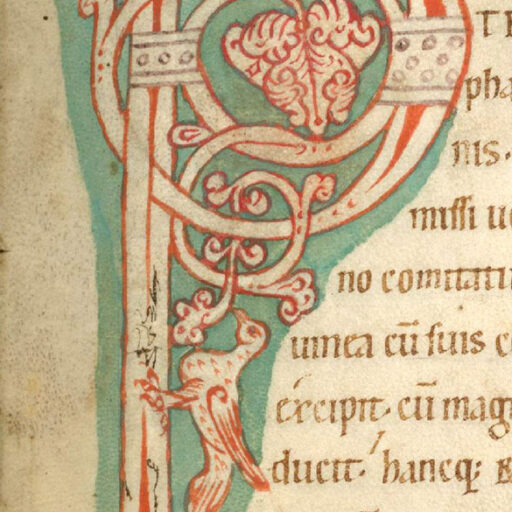 P TE
pha
nis.
missi u
no comitatu
uinea cū suis c
excipit. cū mag
ducit. hancq;